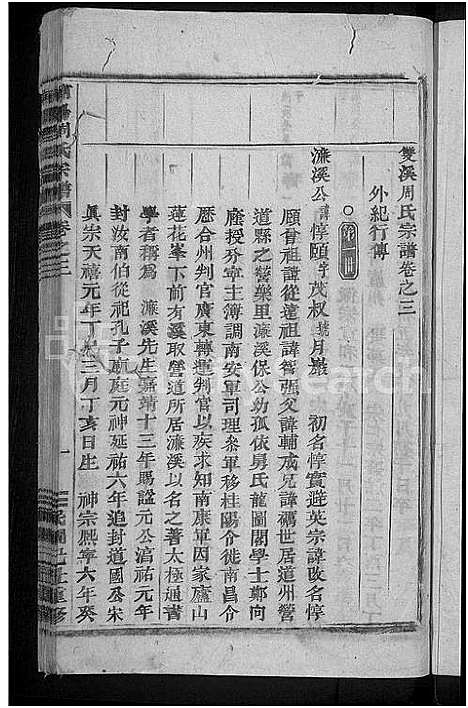 雙溪周氏宗譜卷之三
外紀行傳
濂溪公諱惇頤字茂叔號月巖 初名惇實避英宗諱改名惇
頤曾祖諱從遠祖諱智強父諱輔成兄諱礪世居道州營
道縣之營樂里濂溪保公幼孤依舅氏龍圖閣學士鄭向
廕授分寧主簿調南安軍司理叅軍移桂陽令徙南昌令
歴合州判官廣東轉運判官以疾求知南康軍因家廬山
蓮花峯下前有溪取營道所居濂溪以名之著太極通書
學者稱爲 濂溪先生嘉靖十三年賜諡元公淳祐元年
封汝南伯從祀孔子廟庭元神延祐六年追封道國公宋
眞宗天禧元年丁巳三月丁亥日生 神宗熙寧六年癸
周氏宗譜 卷之三
一